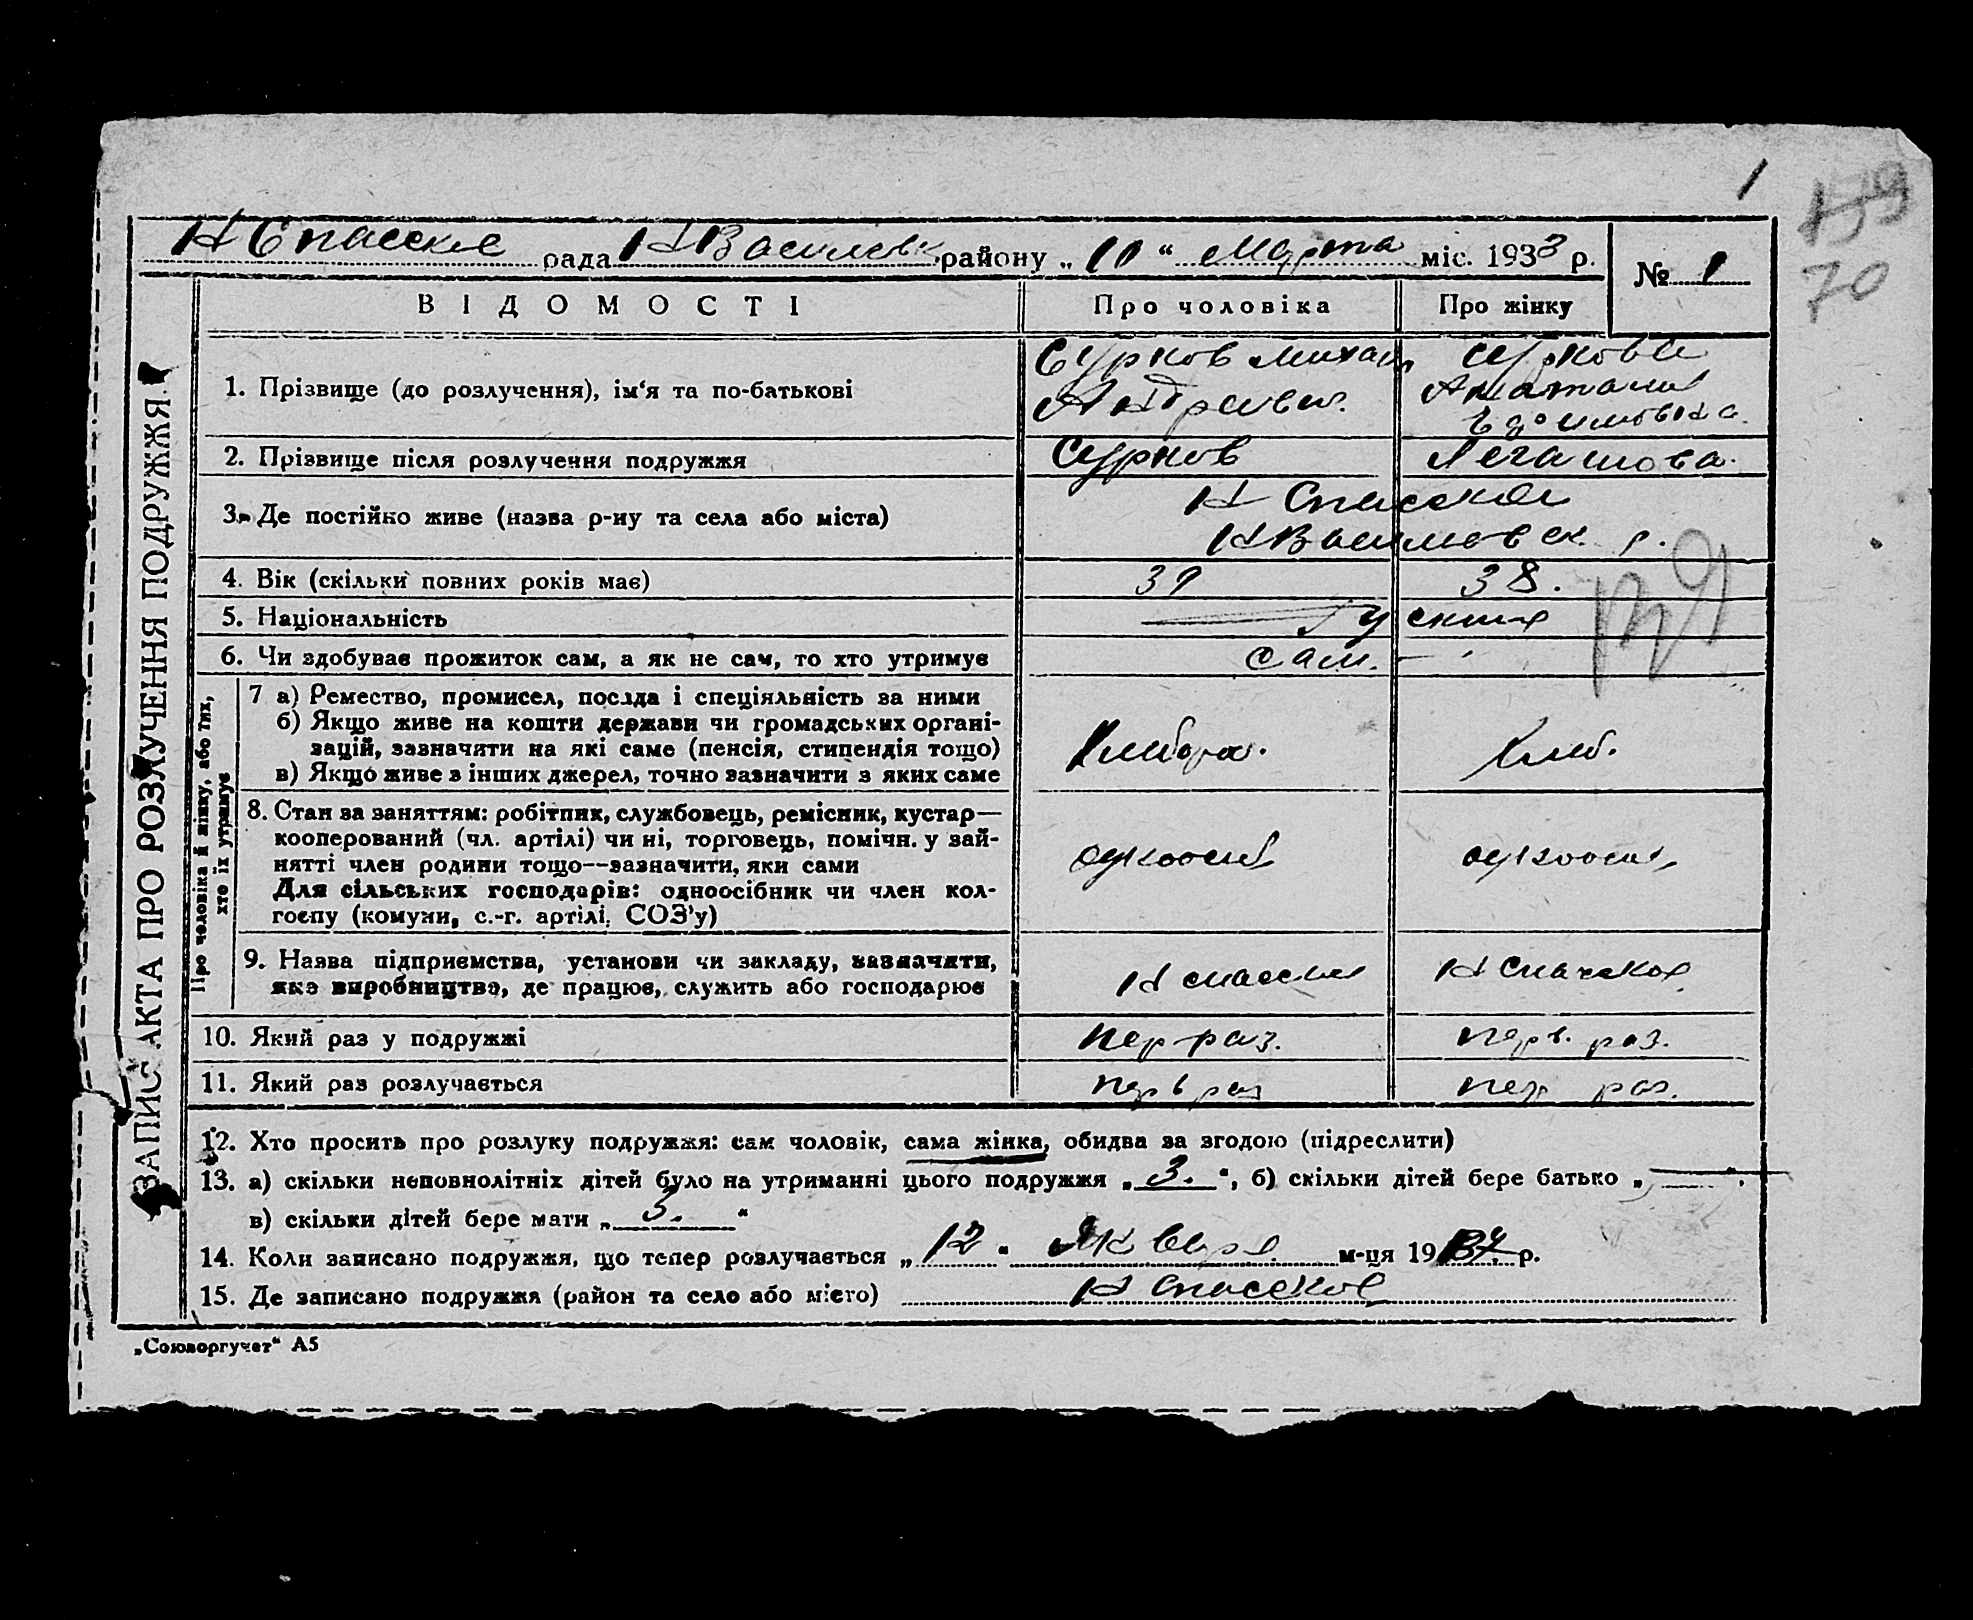 1
179
70
Н Спасское рада Н Васильевк. району „ 10 “ Марта міс. 1933 р.
№ 1
ВІДОМОСТІ
Про чоловіка
Про жінку
ЗАПИС АКТА ПРО РОЗЛУЧЕННЯ ПОДРУЖЖЯ
1. Прізвище (до розлучення), ім‘я та по-батькові
Сурков Михаил
Андреевич.
Суркова
Анаталия
2. Прізвище після розлучення подружжя
Сурков
Легашова.
3. Де постійно живе (назва р-ну та села або міста)
Н Спасское
Н Василевск. р.
4. Вік (скільки повних років має)
39
38.
5. Національність
Руские
6. Чи здобуває прожиток сам, а як не сам, то хто утримує
Сам. —
Про чоловіка й жінку, або тих,
хто їх утримує
7 а) Ремество, промисел, посада і спеціяльність за ними
б) Якщо живе на кошти держави чи громадських органі-
зацій, зазначити на які саме (пенсія, стипендія тощо)
в) Якщо живе з інших джерел, точно зазначити з яких саме
Хлибороб.
Хлиб.
8. Стан за заняттям: робітник, службовець, ремісник, кустар—
кооперований (чл. артілі) чи ні, торговець, помічн. у зай-
нятті член родини тощо—зазначити, яки сами
Для сільських господарів: одноосібник чи член кол-
госпу (комуни, с.-г. артілі, СОЗ’у)
одноосиб
одноосиб
9. Назва підприємства, установи чи закладу, зазначити,
яке виробництво, де працює, служить або господарює
Н спасское
Н Спасское
10. Який раз у подружжі
пер раз.
перв. раз.
11. Який раз розлучається
перв раз
пер раз.
12. Хто просить про розлуку подружжя: сам чоловік, сама жінка, обидва за згодою (підреслити)
13. а) скільки неповнолітніх дітей було на утриманні цього подружжя „ 3. “, б) скільки дітей бере батько „ — “.
в) скільки дітей бере мати „ 3. “
14. Коли записано подружжя, що тепер розлучається „ 12 “ Январе м-ця 19 р.
15. Де записано подружжя (район та село або місто) Н Спасское
„Союзоргучет“ А5